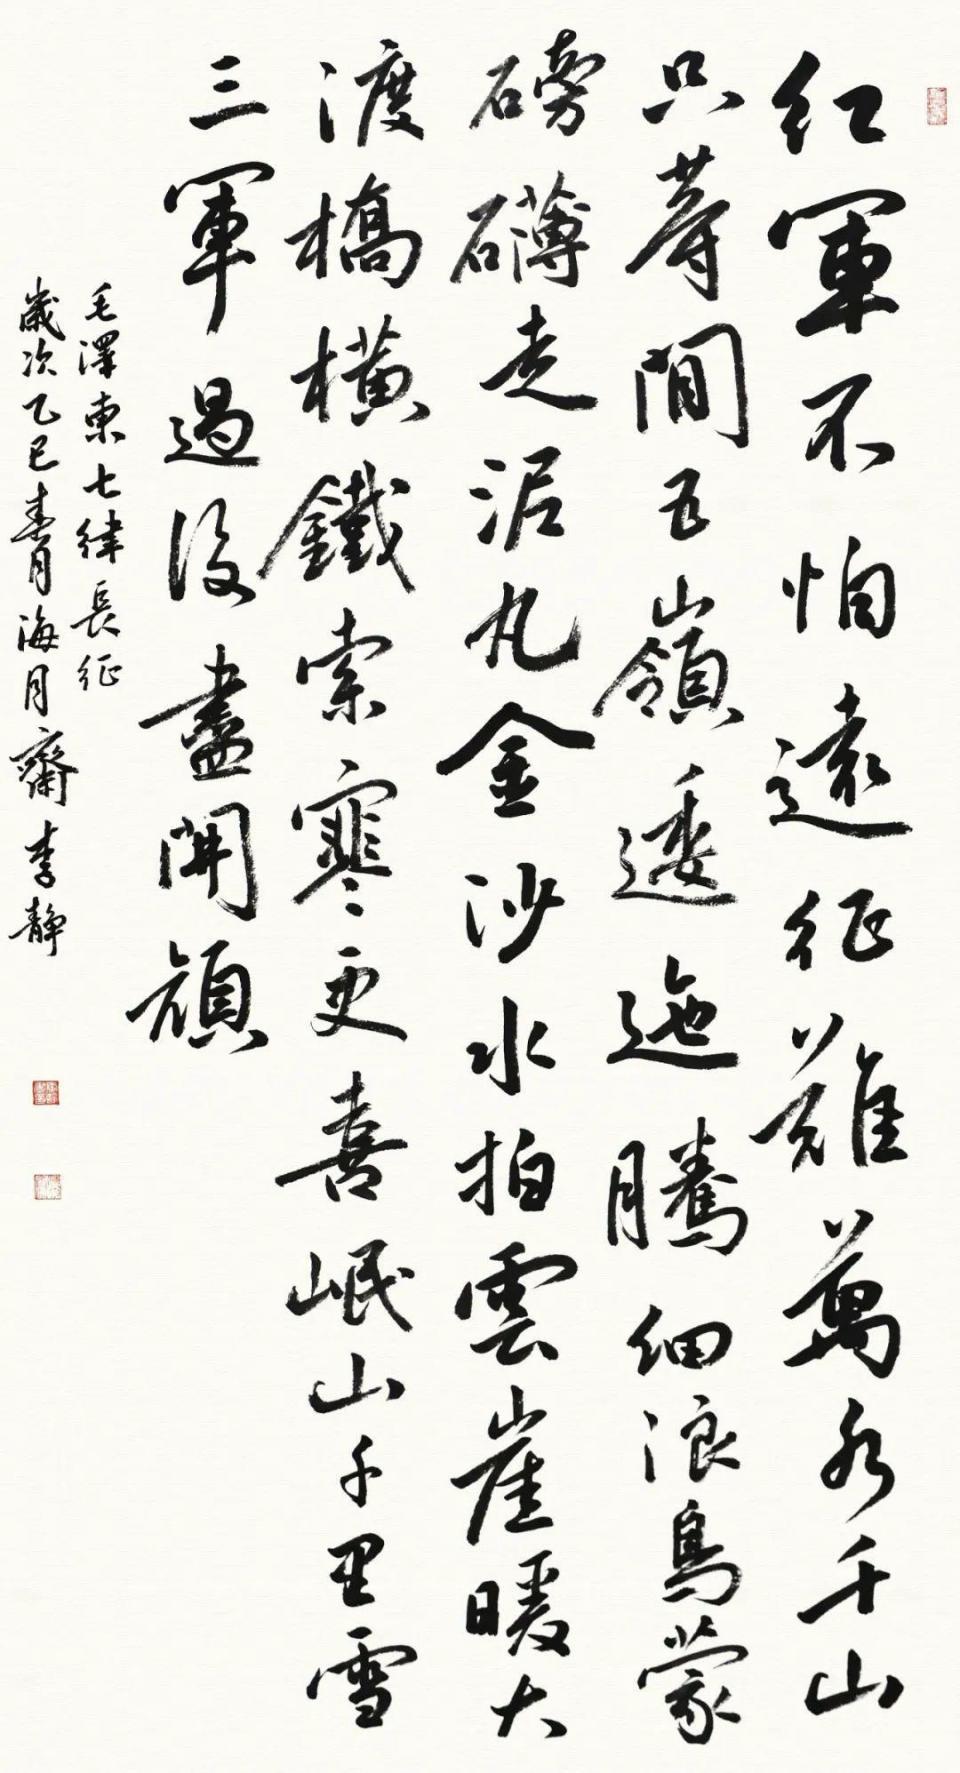 红軍不怕遠征難萬水千山
只等閒五嶺逶迤騰細浪烏蒙
磅礴走泥丸金沙水拍雲崖暖大
渡橋橫鐵索寒更喜岷山千里雪
三軍過後盡開顏
毛澤東七律長征
歲次乙巳春月海月齋李静